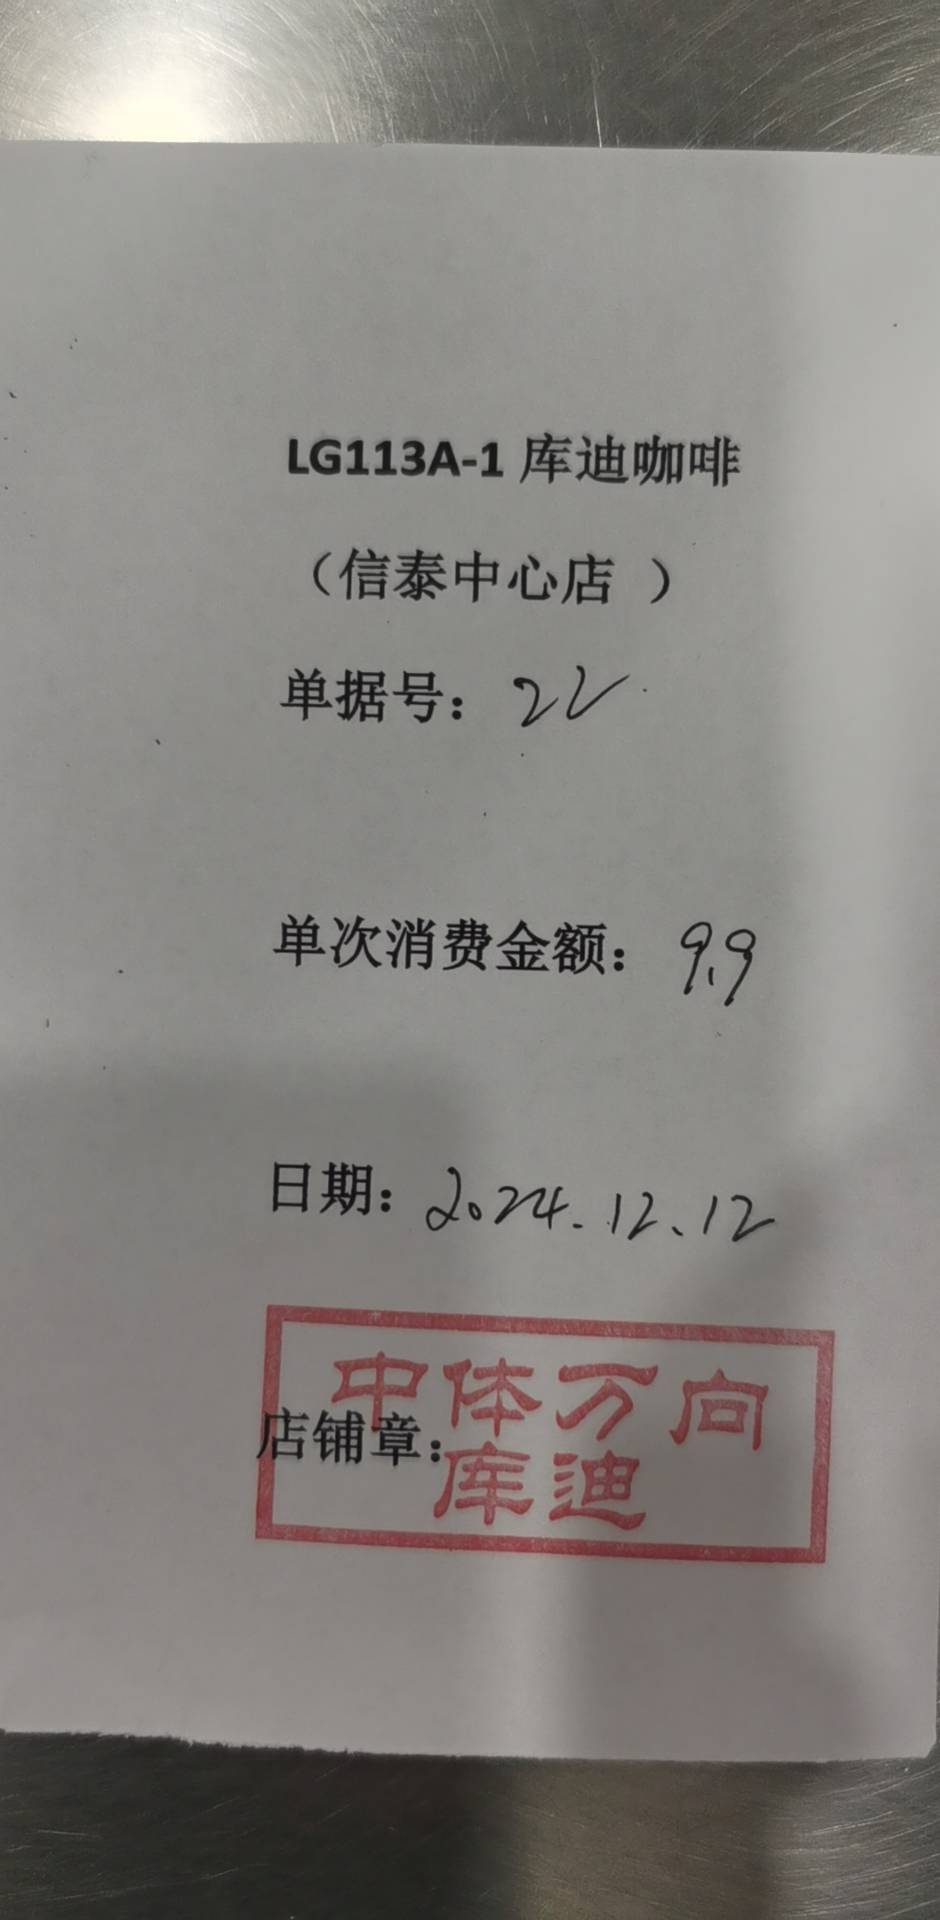 LG113A-1 库迪咖啡
（信泰中心店 ）
单据号：22
单次消费金额：9.9
日期：2024.12.12
中体万向
店铺章：
库迪